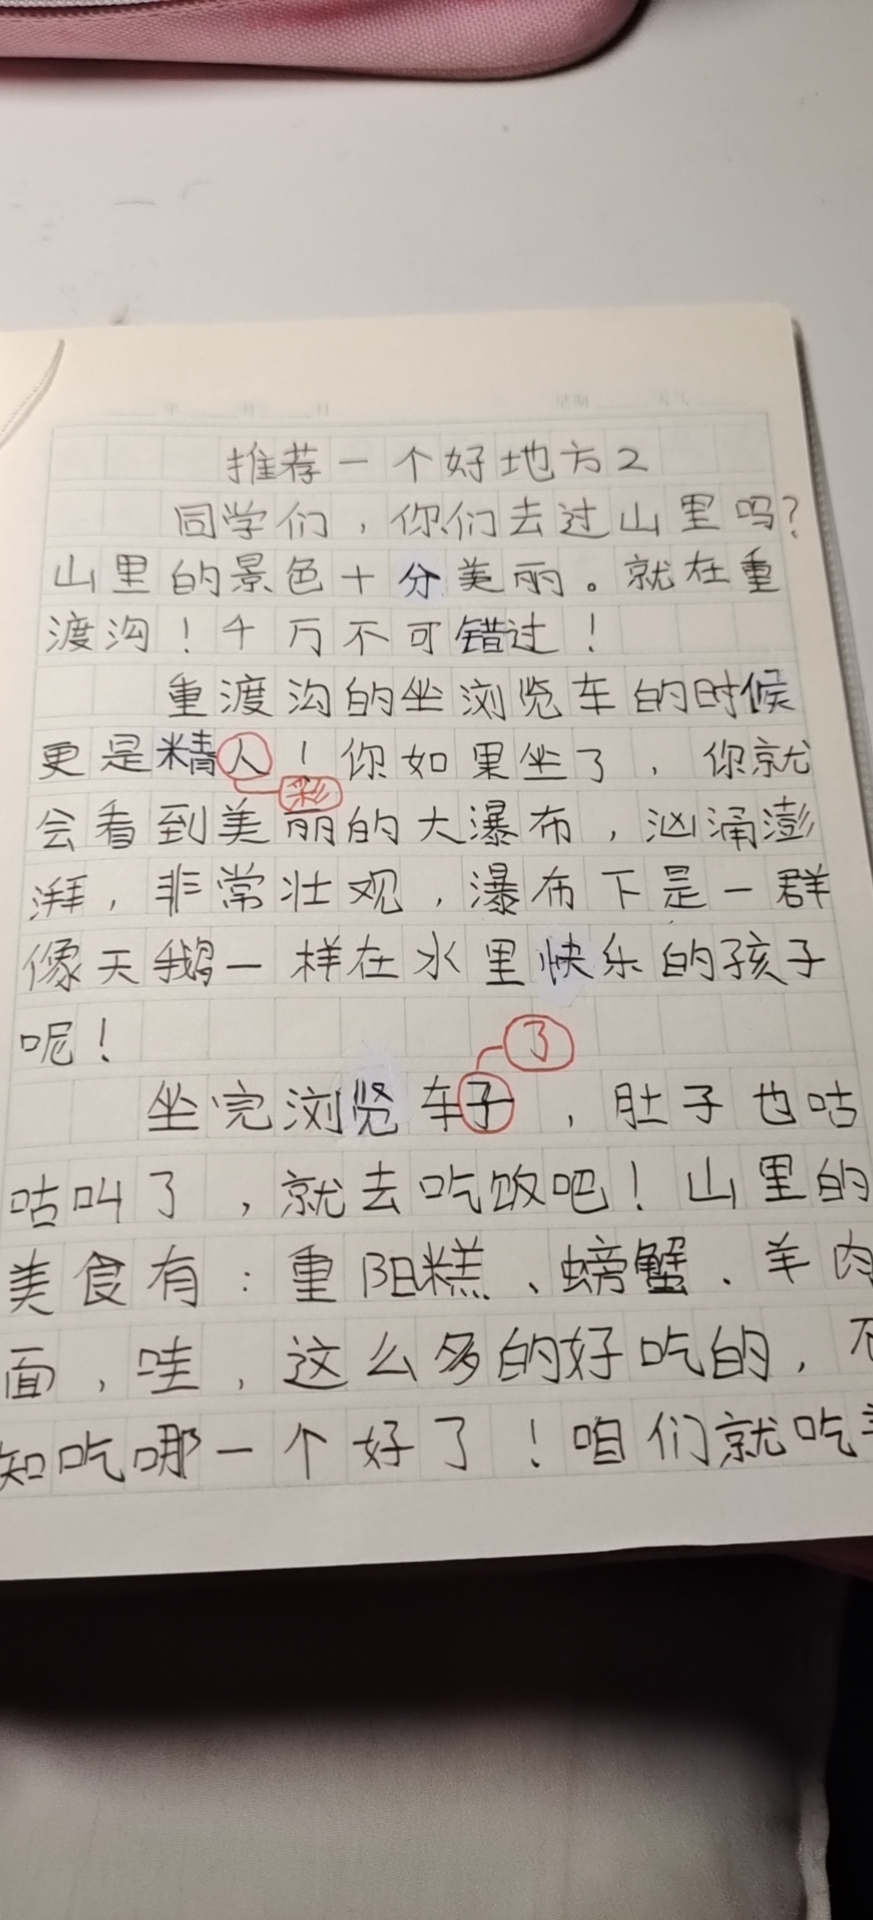 推荐一个好地方2
同学们，你们去过山里吗？
山里的景色十分美丽。就在重
渡沟！千万不可错过！
重渡沟的坐浏览车的时候
更是精人！你如果坐了，你就
彩
会看到美丽的大瀑布，汹涌澎
湃，非常壮观，瀑布下是一群
像天鹅一样在水里快乐的孩子
呢！
了
坐完浏览车子，肚子也咕
咕叫了，就去吃饭吧！山里的
美食有：重阳糕、螃蟹、羊肉
面，哇，这么多的好吃的，不
知吃哪一个好了！咱们就吃